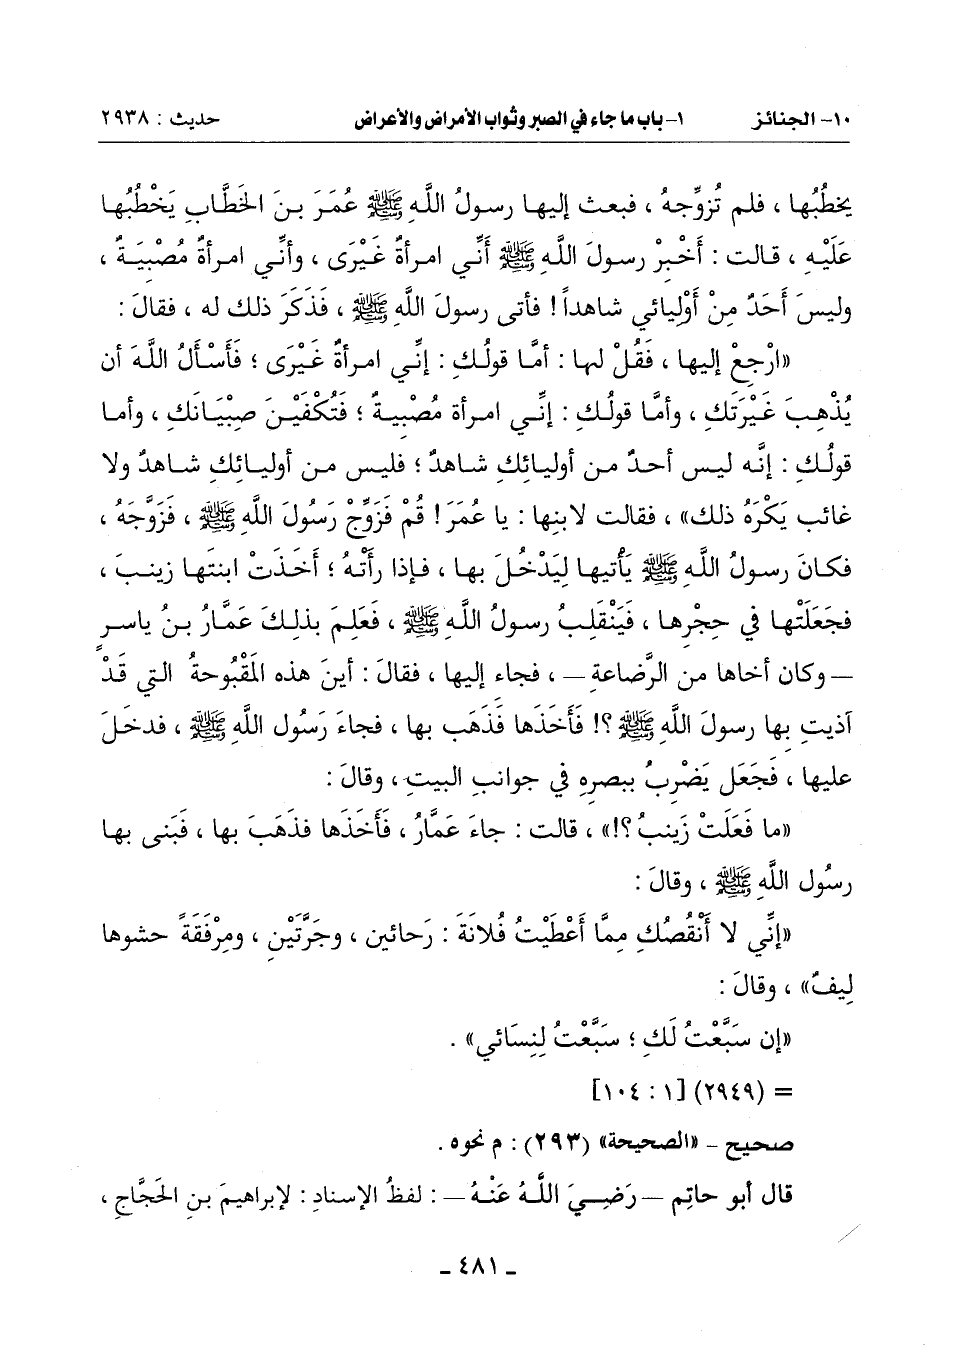 ١٠- الجنائز ١- باب ما جاء في الصبر وثواب الأمراض والأعراض حديث : ٢٩٣٨
يخطُبُها ، فلم تُزوِّجهُ ، فبعث إليها رسولُ اللَّهِ ﷺ عُمَرَ بنَ الخَطَّابِ يَخْطُبُها
عَلَيْهِ ، قالت : أَخْبِرْ رسولَ اللَّهِ ﷺ أَنِّي امرأةٌ غَيْرَى ، وأنِّي امرأةٌ مُصْبِيَةٌ ،
وليسَ أَحَدٌ مِنْ أَوْلِيائي شاهداً ! فأتى رسولَ اللَّهِ ﷺ ، فَذَكَرَ ذلك له ، فقالَ :
«ارْجِعْ إليها ، فَقُلْ لها : أمَّا قولُكِ : إنِّي امرأةٌ غَيْرَى ؛ فَأَسْأَلُ اللَّهَ أن
يُذْهِبَ غَيْرَتَكِ ، وأمَّا قولُكِ : إنِّي امرأة مُصْبِيةٌ ؛ فَتُكْفَيْنَ صِبْيَانَكِ ، وأما
قولُكِ : إنَّه ليس أحدٌ من أوليائِكِ شاهدٌ ؛ فليس من أوليائِكِ شاهدٌ ولا
غائب يَكْرَهُ ذلك» ، فقالت لابنِها : يا عمَرَ ! قُمْ فَزَوِّجْ رَسُولَ اللَّهِ ﷺ ، فَزَوَّجَهُ ،
فكانَ رسولُ اللَّهِ ﷺ يَأْتيها لِيَدْخُلَ بها ، فإذا رأَتْهُ ؛ أَخَذَتْ ابنتَها زينبَ ،
فجَعَلَتْها في حِجْرِها ، فَيَنْقَلِبُ رسولُ اللَّهِ ﷺ ، فَعَلِمَ بذلِكَ عَمَّارُ بنُ ياسرٍ
—وكان أخاها من الرَّضاعةِ— ، فجاء إليها ، فقالَ : أينَ هذه المَقْبُوحةُ التي قَدْ
آذيتِ بها رسولَ اللَّهِ ﷺ ؟! فَأَخَذَها فَذَهَب بها ، فجاءَ رَسُول اللَّهِ ﷺ ، فدخلَ
عليها ، فَجَعَل يَضْرِبُ ببصرِهِ في جوانبِ البيتِ ، وقالَ :
«ما فَعَلَتْ زَينبُ ؟!» ، قالت : جاءَ عَمَّارُ ، فَأَخَذَها فذَهَبَ بها ، فَبَنى بها
رسُول اللَّهِ ﷺ ، وقالَ :
«إنِّي لا أَنْقُصُكِ مِمَّا أَعْطَيْتُ فُلانَةَ : رَحائين ، وجَرَّتَيْنِ ، ومِرْفَقَةً حشوها
لِيفٌ» ، وقالَ :
«إن سَبَّعْتُ لَكِ ؛ سَبَّعْتُ لِنِسَائي» .
= (٢٩٤٩) [١ : ١٠٤]
صحيح - «الصحيحة» (٢٩٣) : م نحوه .
قال أبو حاتِم —رَضِيَ اللَّهُ عَنْهُ— : لفظُ الإسنادِ : لإبراهيمَ بنِ الحَجَّاجِ ،
- ٤٨١ -